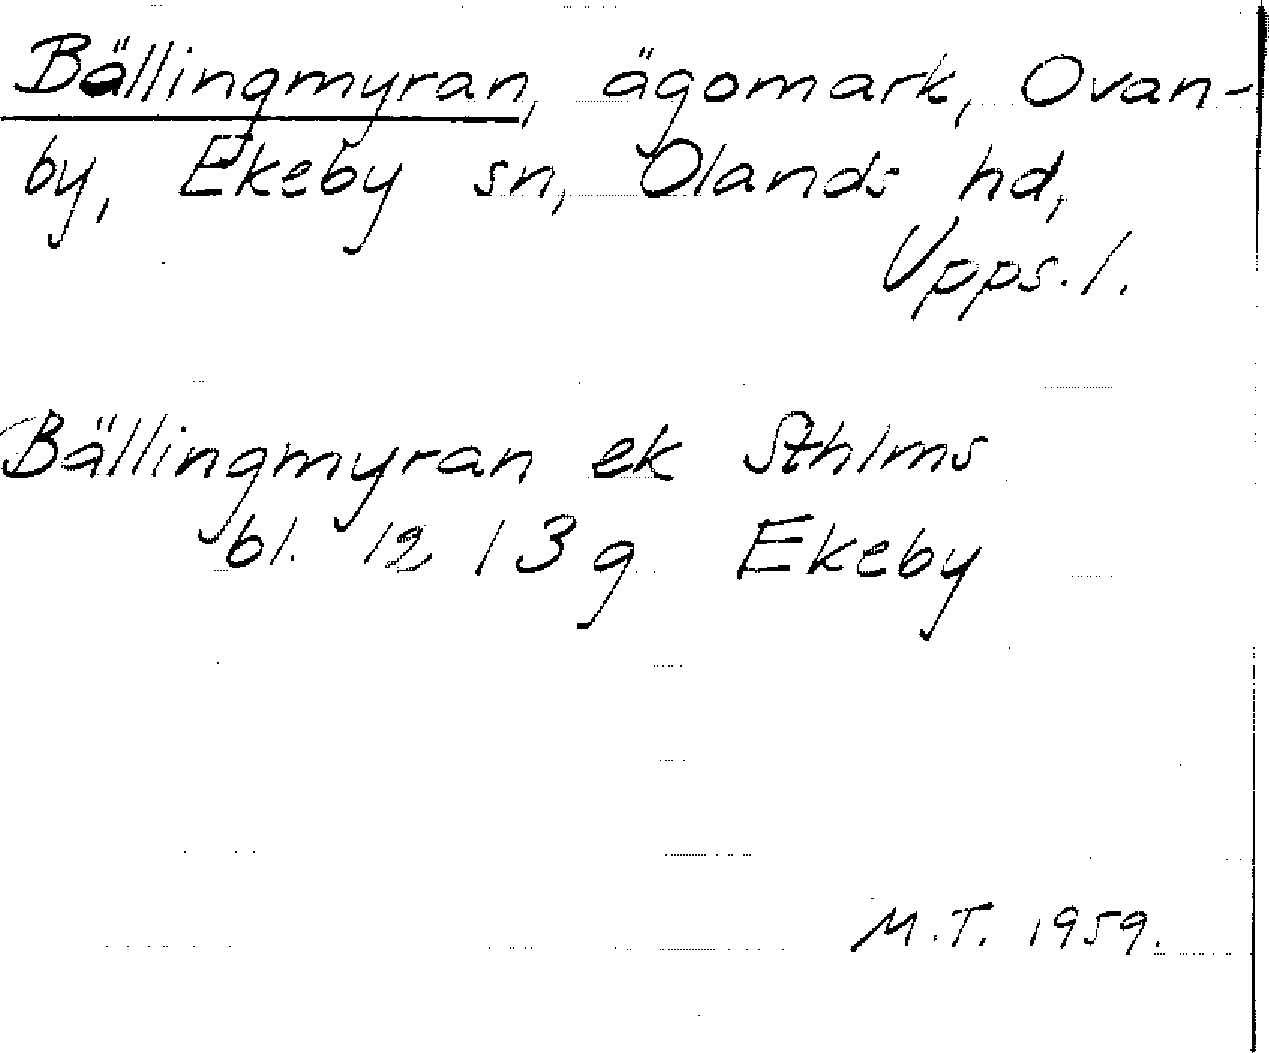 Bällingmyran, ägomark, Ovan-
by, Ekeby sn, Olands hd,
Upps. l.
Bällingmyran ek Sthlms
bl. 12 I 3 g Ekeby
M.T. 1959.